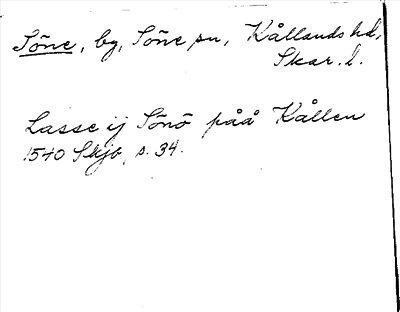 Söne, by, Söne sn, Kållands hd,
Skar. l.
Lasse ij Sönö påå Kållen
1540 Skjb, s. 34.